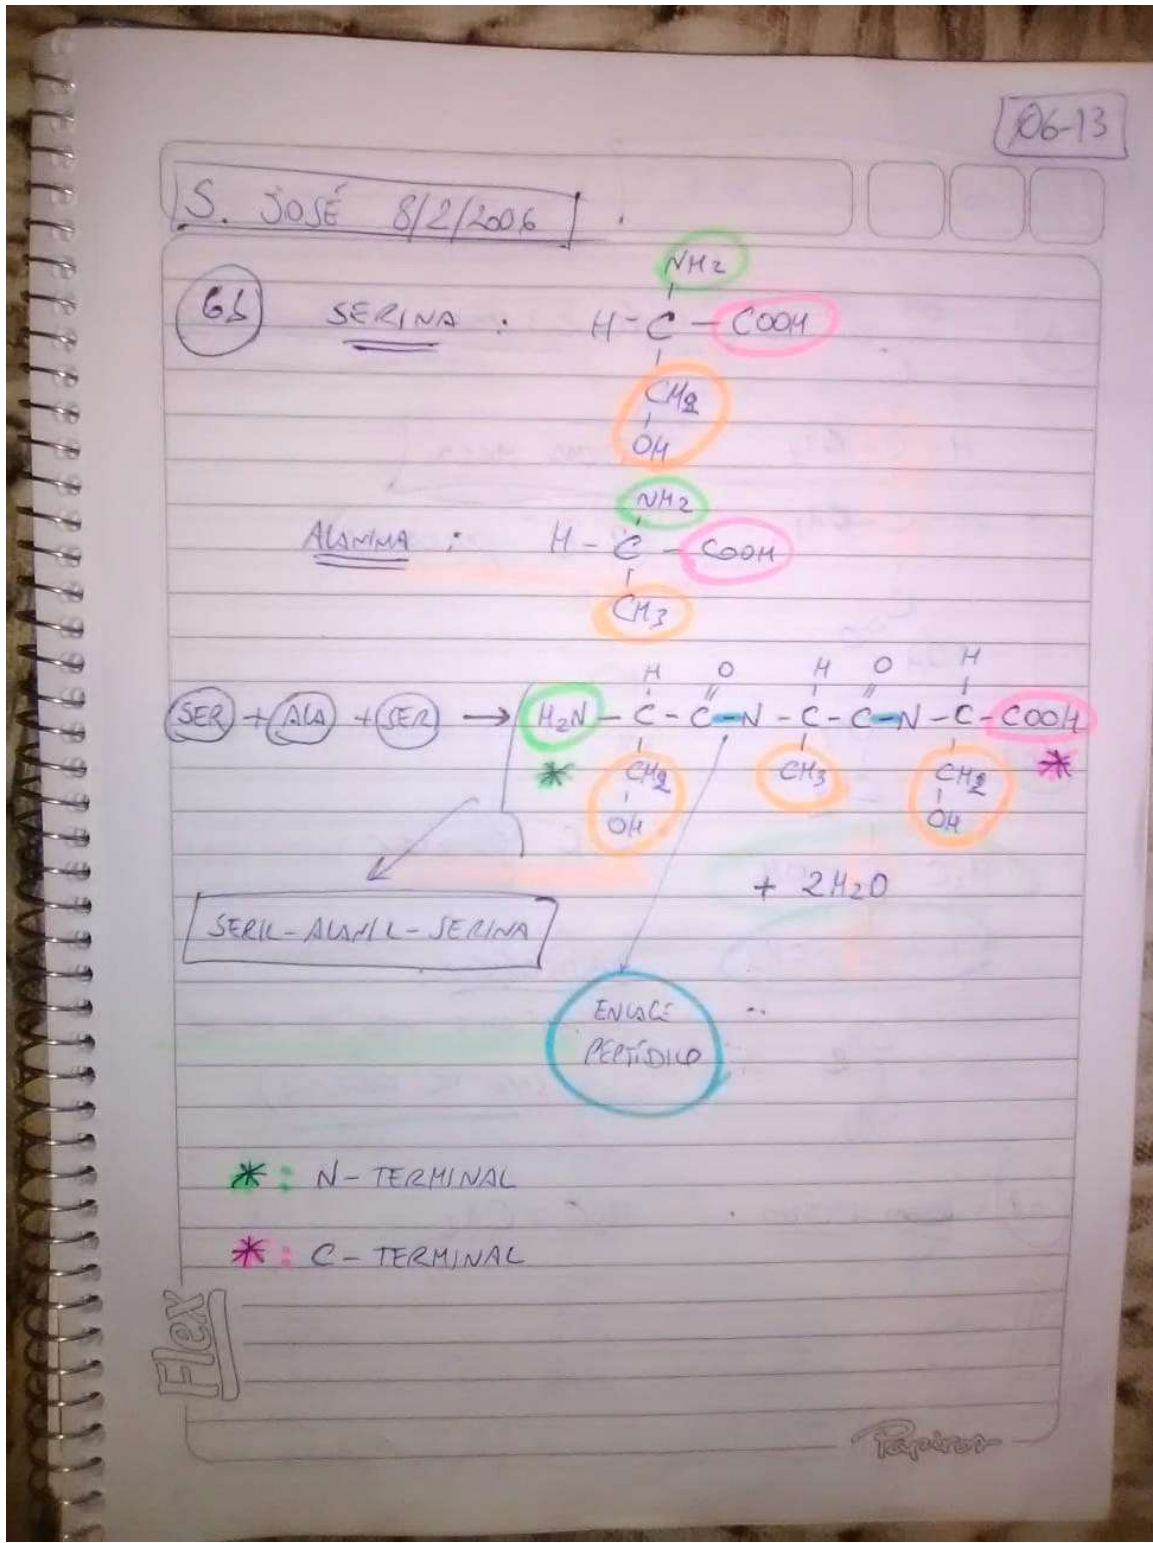 06-13
S. JOSÉ 8/2/2006
SERINA :
NH2
H - C - COOH
CH2
OH
ALANINA :
NH2
H - C - COOH
CH3
H O H O H
SER + ALA + SER → H2N - C - C - N - C - C - N - C - COOH
* CH2 CH3 CH2 *
OH OH
+ 2H2O
SERIL - ALANIL - SERINA
ENLACE
PEPTÍDICO
* : N - TERMINAL
* : C - TERMINAL
Flex
Papiros